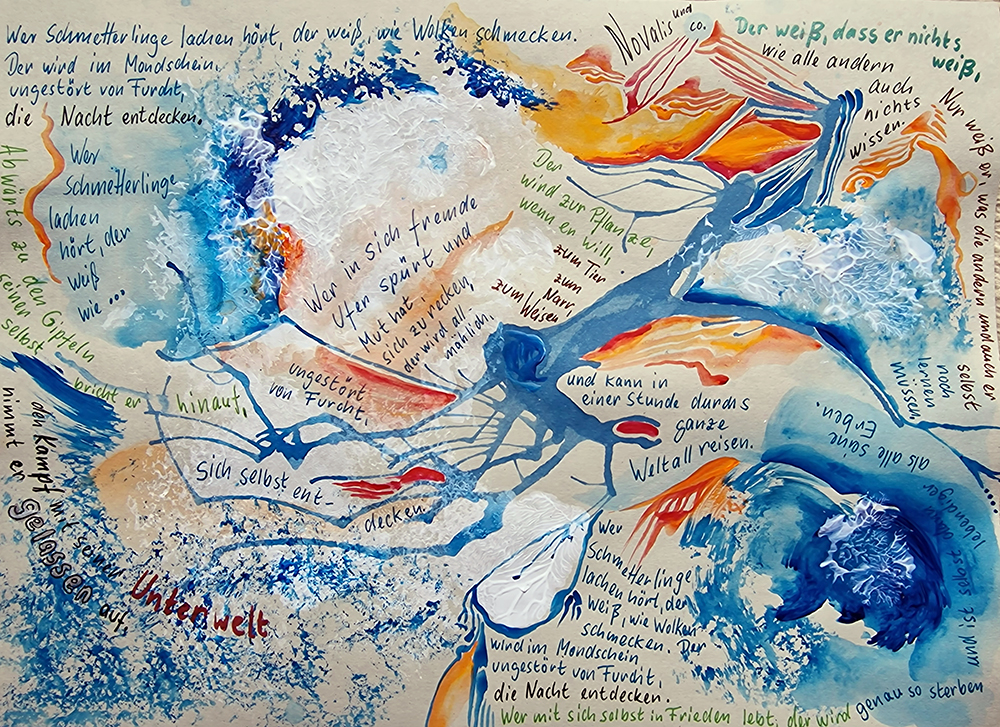 Wer Schmetterlinge lachen hört, der weiß, wie Wolken schmecken.
Der wird im Mondschein,
ungestört von Furcht,
die Nacht entdecken.
Wer
Schmetterlinge
lachen
hört, der
weiß
wie ...
Novalis und
co.
Der weiß, dass er nichts
weiß,
wie alle andern
auch
nichts
wissen.
Nur weiß er, was die andern und auch er
selbst
noch
lernen
müssen....
Wer in sich fremde
Ufer spürt und
Mut hat,
sich zu recken,
der wird all-
mählich,
ungestört
von Furcht,
Sich selbst ent-
decken.
Abwärts zu den Gipfeln
seiner
selbst
bricht er hinauf,
den Kampf mit seiner
Unterwelt
nimmt er gelassen auf.
Der
wird zur Pflanze,
wenn er will,
zum Tier
zum
Narr,
zum Weisen
und kann in
einer Stunde durchs
ganze
Weltall reisen.
Wer
Schmetterlinge
lachen hört, der
weiß, wie Wolken
schmecken. Der
wird im Mondschein
ungestört von Furcht,
die Nacht entdecken.
Wer mit sich selbst in Frieden lebt, der wird genau so sterben
und ist selbst dann
lebendiger
als alle seine
Erben.